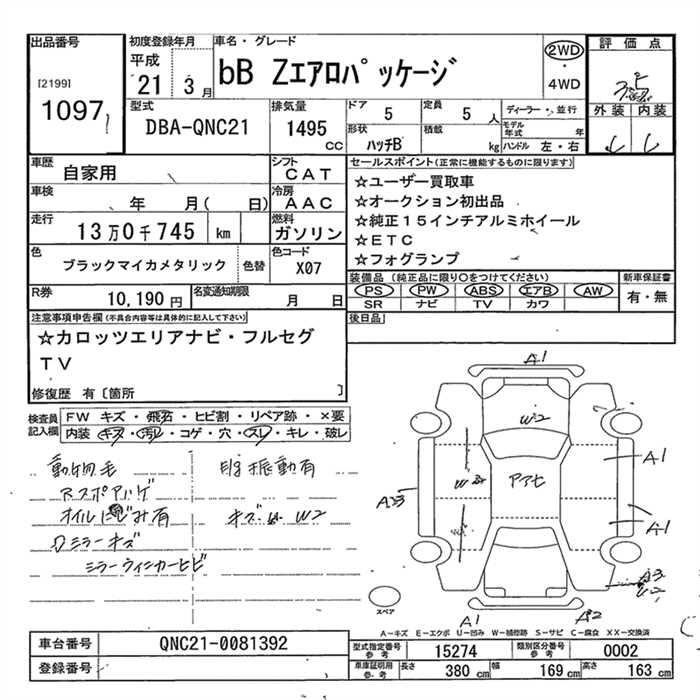 出品番号
[2199]
1097
初度登録年月
平成
21 3月
車名・グレード
bB Zエアロパッケージ
2WD
・
4WD
評価点
3.5
外装 内装
型式
DBA-QNC21
排気量
1495
CC
ドア
5
定員
5 人
形状
ハッチB
積載
kg
ディーラー・並行
モデル年式 年
ハンドル 左・右
車歴
自家用
シフト
CAT
車検
年 月( 日)
冷房
AAC
走行
13万0千745 km
燃料
ガソリン
色
ブラックマイカメタリック
色替
色コード
X07
R券
10,190 円
名変通知期限
月 日
セールスポイント(正常に機能するものに限ります)
☆ユーザー買取車
☆オークション初出品
☆純正15インチアルミホイール
☆ETC
☆フォグランプ
装備品 (純正品に限り○をつけてください)
PS PW ABS エアB AW
SR ナビ TV カワ
新車保証書
有・無
後日品
注意事項申告欄(不具合内容等は具体的に記入して下さい)
☆カロッツエリアナビ・フルセグ
TV
修復歴 有〔箇所 〕
検査員記入欄
FW キズ・飛石・ヒビ割・リペア跡・×要
内装 キズ・汚レ・コゲ・穴・スレ・キレ・破レ
動物毛
振動有
オイルにじみ有
キズ W2
ミラーキズ
ミラーウィンカーヒビ
A1
W2
A1
A33
W2
アアヒ
A1
A3
W2
A1
A2
スペア
A-キズ E-エクボ U-凹み W-補修跡 S-サビ C-腐食 XX-交換済
車台番号
QNC21-0081392
登録番号
型式指定番号 参考
15274
類別区分番号 参考
0002
車庫証明用 参考
長さ 380 cm
幅 169 cm
高さ 163 cm